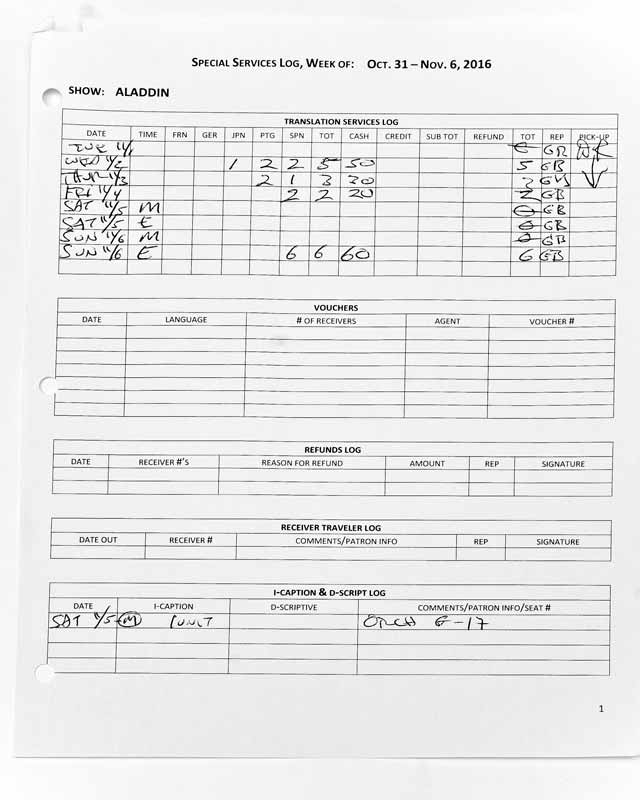 SPECIAL SERVICES LOG, WEEK OF: OCT. 31 – NOV. 6, 2016
SHOW: ALADDIN
TRANSLATION SERVICES LOG
DATE TIME FRN GER JPN PTG SPN TOT CASH CREDIT SUB TOT REFUND TOT REP PICK-UP
TUE 11/1 0 GB
WED 11/2 1 2 2 5 50 5 GB
THUR 11/3 2 1 3 30 3 GB
FRI 11/4 2 2 20 2 GB
SAT 11/5 M 0 GB
SAT 11/5 E 0 GB
SUN 11/6 M 0 GB
SUN 11/6 E 6 6 60 6 GB
VOUCHERS
DATE LANGUAGE # OF RECEIVERS AGENT VOUCHER #
REFUNDS LOG
DATE RECEIVER #'S REASON FOR REFUND AMOUNT REP SIGNATURE
RECEIVER TRAVELER LOG
DATE OUT RECEIVER # COMMENTS/PATRON INFO REP SIGNATURE
I-CAPTION & D-SCRIPT LOG
DATE I-CAPTION D-SCRIPTIVE COMMENTS/PATRON INFO/SEAT #
SAT 11/5 M 1 UNIT ORCH G-17
1